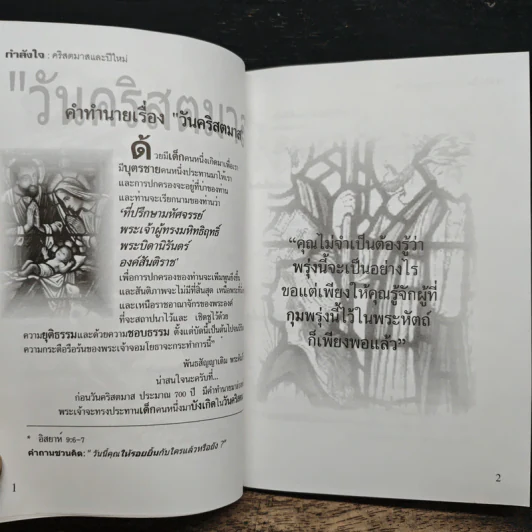 กำลังใจ : คริสตมาสและปีใหม่
"วันคริสตมาส
คำทำนายเรื่อง "วันคริสตมาส"
ด้วยมีเด็กคนหนึ่งเกิดมาเพื่อเรา
มีบุตรชายคนหนึ่งประทานมาให้เรา
และการปกครองจะอยู่ที่บ่าของท่าน
และท่านจะเรียกนามของท่านว่า
'ที่ปรึกษามหัศจรรย์
พระเจ้าผู้ทรงมหิทธิฤทธิ์
พระบิดานิรันดร์
องค์สันติราช'
เพื่อการปกครองของท่านจะเพิ่มพูนยิ่งขึ้น
และสันติภาพจะไม่มีที่สิ้นสุด เหนือพระที่นั่ง
และเหนือราชอาณาจักรของพระองค์
ที่จะสถาปนาไว้และ เชิดชูไว้ด้วย
ความยุติธรรมและด้วยความชอบธรรม ตั้งแต่บัดนี้เป็นต้นไป
ความกระตือรือร้นของพระเจ้าจอมโยธาจะกระทำการนี้*
พันธสัญญาเดิม
น่าสนใจนะครับที่...
ก่อนวันคริสตมาส ประมาณ 700 ปี มีคำทำนาย
พระเจ้าจะทรงประทานเด็กคนหนึ่งมาบังเกิดในวันคริสต
* อิสยาห์ 9:6-7
คำถามชวนคิด: "วันนี้คุณให้รอยยิ้มกับใครแล้วหรือยัง ?"
1
“คุณไม่จำเป็นต้องรู้ว่า
พรุ่งนี้จะเป็นอย่างไร
ขอแต่เพียงให้คุณรู้จักผู้ที่
กุมพรุ่งนี้ไว้ในพระหัตถ์
ก็เพียงพอแล้ว”
2